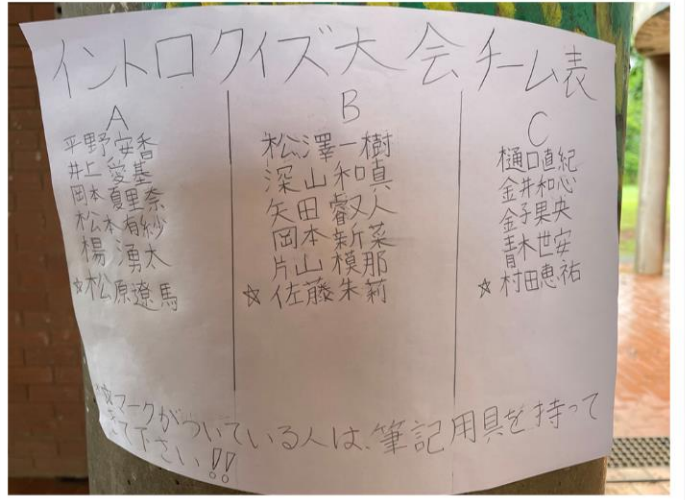 イントロクイズ大会チーム表
A
平野安香
井上愛基
岡本夏里奈
松本有紗
楊湧太
☆松原遼馬
B
松澤一樹
深山和真
矢田叡人
岡本新菜
片山模那
☆佐藤朱莉
C
樋口直紀
金井和心
金子果央
青木世安
☆村田恵祐
☆マークがついている人は、筆記用具を持って
きて下さい!!